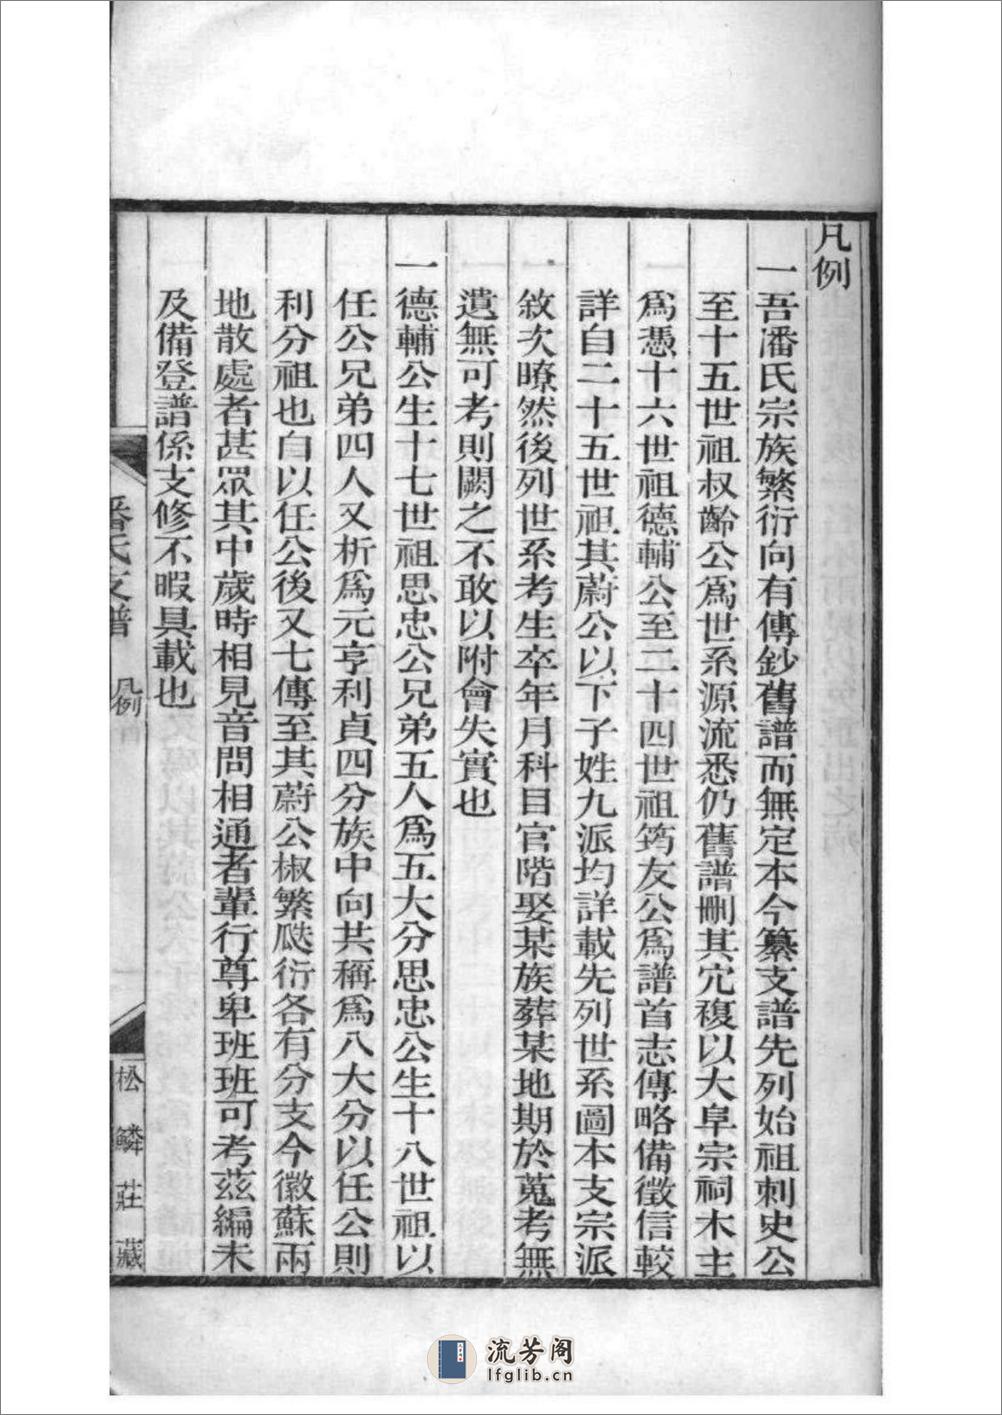 凡例
一吾潘氏宗族繁衍向有傳鈔舊譜而無定本今纂支譜先列始祖刺史公
至十五世祖叔齡公爲世系源流悉仍舊譜刪其宂複以大阜宗祠木主
爲憑十六世祖德輔公至二十四世祖筠友公爲譜首志傳略備徵信較
詳自二十五世祖其蔚公以下子姓九派均詳載先列世系圖本支宗派
敘次暸然後列世系考生卒年月科目官階娶某族葬某地期於蒐考無
遺無可考則闕之不敢以附會失實也
一德輔公生十七世祖思忠公兄弟五人爲五大分思忠公生十八世祖以
任公兄弟四人又析爲元亨利貞四分族中向共稱爲八大分以任公則
利分祖也自以任公後又七傳至其蔚公椒繁瓞衍各有分支今徽蘇兩
地散處者甚眾其中歲時相見音問相通者輩行尊卑班班可考茲編未
及備登譜係支修不暇具載也
潘氏支譜 凡例 一 松鱗莊藏
流芳阁
lfglib.cn